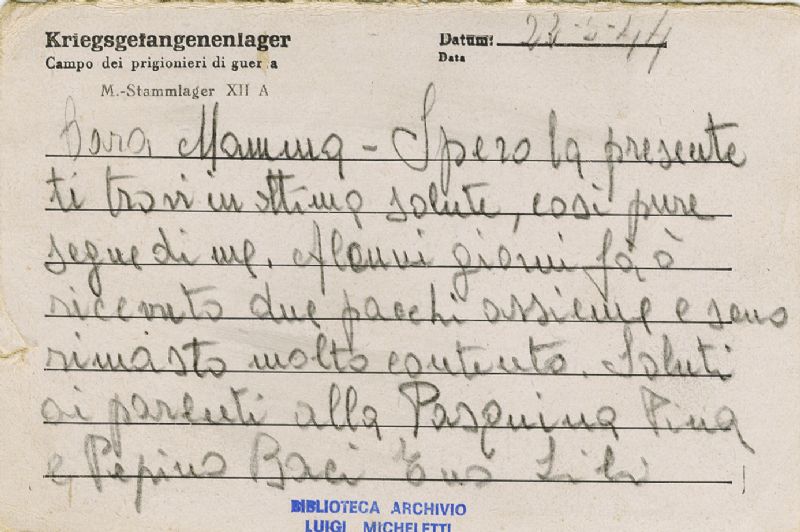 Kriegsgefangenenlager
Campo dei prigionieri di guerra
M.-Stammlager XII A
Datum: 22-5-44
Data
Cara Mamma - Spero la presente
ti trovi in ottima salute, così pure
segue di me. Alcuni giorni fà ò
ricevuto due pacchi assieme e sono
rimasto molto contento. Saluti
ai parenti alla Pasquina Pina
e Pepino Baci
BIBLIOTECA ARCHIVIO
LUIGI MICHELETTI